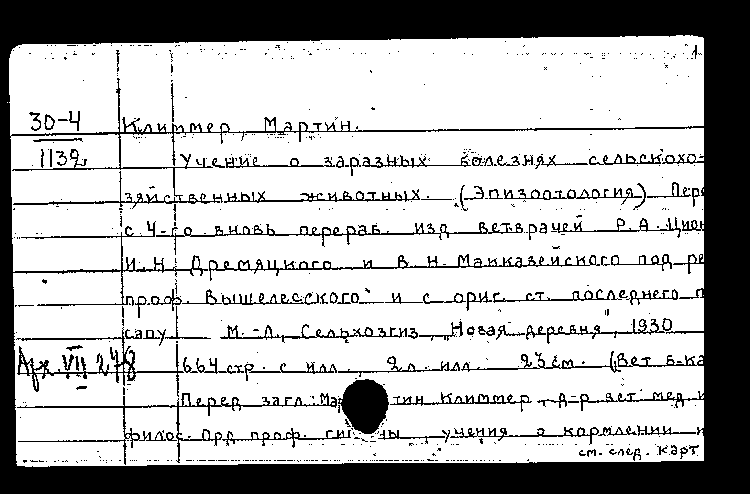 1
30-4 Климмер, Мартин.
1139 Учение о заразных болезнях сельскохо-
зяйственных животных. (Эпизоотология) Пере
с 4-го вновь перераб. изд ветврачей Р.А. Цион
И.Н. Дремяцкого и В.Н. Макавейского под ре
проф. Вышелесского и с ориг. ст. последнего п
сапу М.-Л., Сельхозгиз, "Новая деревня", 1930
Арх. VII 278 664 стр. с илл., 2 л. илл. 23 см. (Вет. б-ка
Перед загл: Мартин Климмер, д-р вет. мед. и
филос. Орд. проф. гигиены, учения о кормлении и
см. след. карт